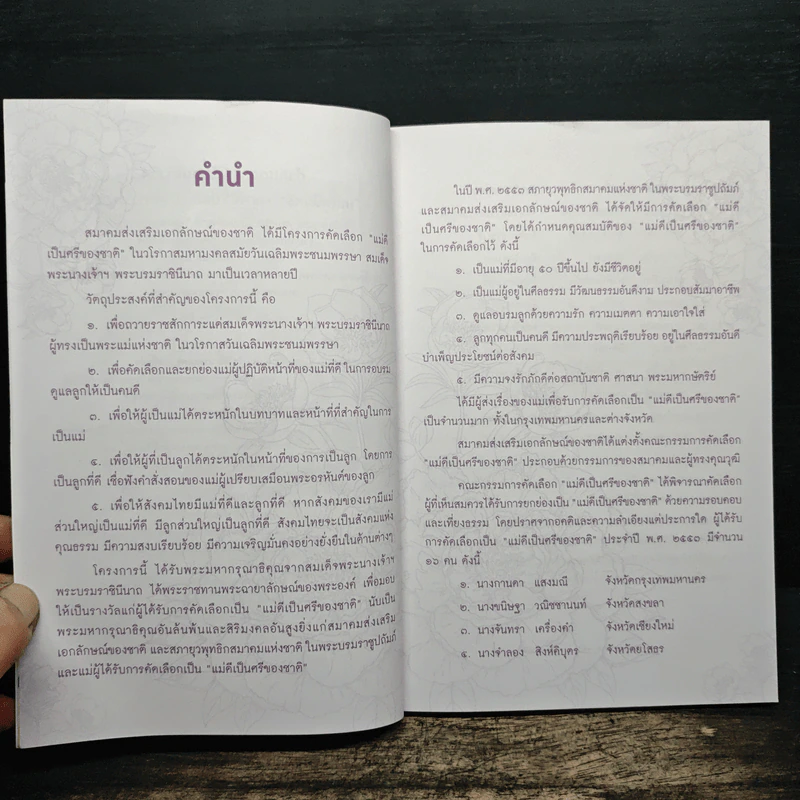 คำนำ
สมาคมส่งเสริมเอกลักษณ์ของชาติ ได้มีโครงการคัดเลือก "แม่ดี
เป็นศรีของชาติ" ในวโรกาสมหามงคลสมัยวันเฉลิมพระชนมพรรษา สมเด็จ
พระนางเจ้าฯ พระบรมราชินีนาถ มาเป็นเวลาหลายปี
วัตถุประสงค์ที่สำคัญของโครงการนี้ คือ
๑. เพื่อถวายราชสักการะแด่สมเด็จพระนางเจ้าฯ พระบรมราชินีนาถ
ผู้ทรงเป็นพระแม่แห่งชาติ ในวโรกาสวันเฉลิมพระชนมพรรษา
๒. เพื่อคัดเลือกและยกย่องแม่ผู้ปฏิบัติหน้าที่ของแม่ที่ดี ในการอบรม
ดูแลลูกให้เป็นคนดี
๓. เพื่อให้ผู้เป็นแม่ได้ตระหนักในบทบาทและหน้าที่ที่สำคัญในการ
เป็นแม่
๔. เพื่อให้ผู้ที่เป็นลูกได้ตระหนักในหน้าที่ของการเป็นลูก โดยการ
เป็นลูกที่ดี เชื่อฟังคำสั่งสอนของแม่ผู้เปรียบเสมือนพระอรหันต์ของลูก
๕. เพื่อให้สังคมไทยมีแม่ที่ดีและลูกที่ดี หากสังคมของเรามีแม่
ส่วนใหญ่เป็นแม่ที่ดี มีลูกส่วนใหญ่เป็นลูกที่ดี สังคมไทยจะเป็นสังคมแห่ง
คุณธรรม มีความสงบเรียบร้อย มีความเจริญมั่นคงอย่างยั่งยืนในด้านต่างๆ
โครงการนี้ ได้รับพระมหากรุณาธิคุณจากสมเด็จพระนางเจ้าฯ
พระบรมราชินีนาถ ได้พระราชทานพระฉายาลักษณ์ของพระองค์ เพื่อมอบ
ให้เป็นรางวัลแก่ผู้ได้รับการคัดเลือกเป็น "แม่ดีเป็นศรีของชาติ" นับเป็น
พระมหากรุณาธิคุณอันล้นพ้นและสิริมงคลอันสูงยิ่งแก่สมาคมส่งเสริม
เอกลักษณ์ของชาติ และสภายุวพุทธิกสมาคมแห่งชาติ ในพระบรมราชูปถัมภ์
และแม่ผู้ได้รับการคัดเลือกเป็น "แม่ดีเป็นศรีของชาติ"
ในปี พ.ศ. ๒๕๕๓ สภายุวพุทธิกสมาคมแห่งชาติ ในพระบรมราชูปถัมภ์
และสมาคมส่งเสริมเอกลักษณ์ของชาติ ได้จัดให้มีการคัดเลือก "แม่ดี
เป็นศรีของชาติ" โดยได้กำหนดคุณสมบัติของ "แม่ดีเป็นศรีของชาติ"
ในการคัดเลือกไว้ ดังนี้
๑. เป็นแม่ที่มีอายุ ๕๐ ปีขึ้นไป ยังมีชีวิตอยู่
๒. เป็นแม่ผู้อยู่ในศีลธรรม มีวัฒนธรรมอันดีงาม ประกอบสัมมาอาชีพ
๓. ดูแลอบรมลูกด้วยความรัก ความเมตตา ความเอาใจใส่
๔. ลูกทุกคนเป็นคนดี มีความประพฤติเรียบร้อย อยู่ในศีลธรรมอันดี
บำเพ็ญประโยชน์ต่อสังคม
๕. มีความจงรักภักดีต่อสถาบันชาติ ศาสนา พระมหากษัตริย์
ได้มีผู้ส่งเรื่องของแม่เพื่อรับการคัดเลือกเป็น "แม่ดีเป็นศรีของชาติ"
เป็นจำนวนมาก ทั้งในกรุงเทพมหานครและต่างจังหวัด
สมาคมส่งเสริมเอกลักษณ์ของชาติได้แต่งตั้งคณะกรรมการคัดเลือก
"แม่ดีเป็นศรีของชาติ" ประกอบด้วยกรรมการของสมาคมและผู้ทรงคุณวุฒิ
คณะกรรมการคัดเลือก "แม่ดีเป็นศรีของชาติ" ได้พิจารณาคัดเลือก
ผู้ที่เห็นสมควรได้รับการยกย่องเป็น "แม่ดีเป็นศรีของชาติ" ด้วยความรอบคอบ
และเที่ยงธรรม โดยปราศจากอคติและความลำเอียงแต่ประการใด ผู้ได้รับ
การคัดเลือกเป็น "แม่ดีเป็นศรีของชาติ" ประจำปี พ.ศ. ๒๕๕๓ มีจำนวน
๑๖ คน ดังนี้
๑. นางกานดา แสงมณี จังหวัดกรุงเทพมหานคร
๒. นางขนิษฐา วณิชชานนท์ จังหวัดสงขลา
๓. นางจันทรา เครื่องคำ จังหวัดเชียงใหม่
๔. นางจำลอง สิงห์คิบุตร จังหวัดยโสธร